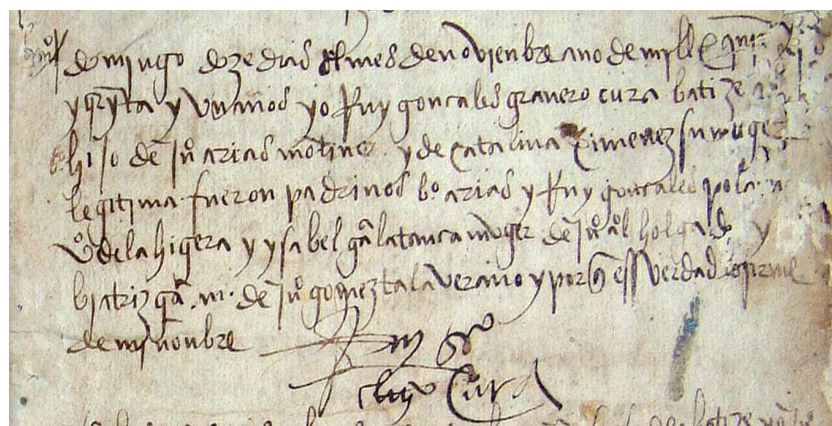 domingo doze dias del mes de novienbre ano de mill e quis
y qryta y un anos yo Ruy gonçales granero cura batize a
hijo de Juº arias molinero y de catalina ximenez su muger
legitima fueron padrinos bº arias y Ruy gonçales
vº de la higera y ysabel gª la tanca muger de Juº holgado y
biatriz gª m. de Juº gomez talaverano y porq es verdad lo firme
de mi nonbre
Ruy gº
clerigo Cura